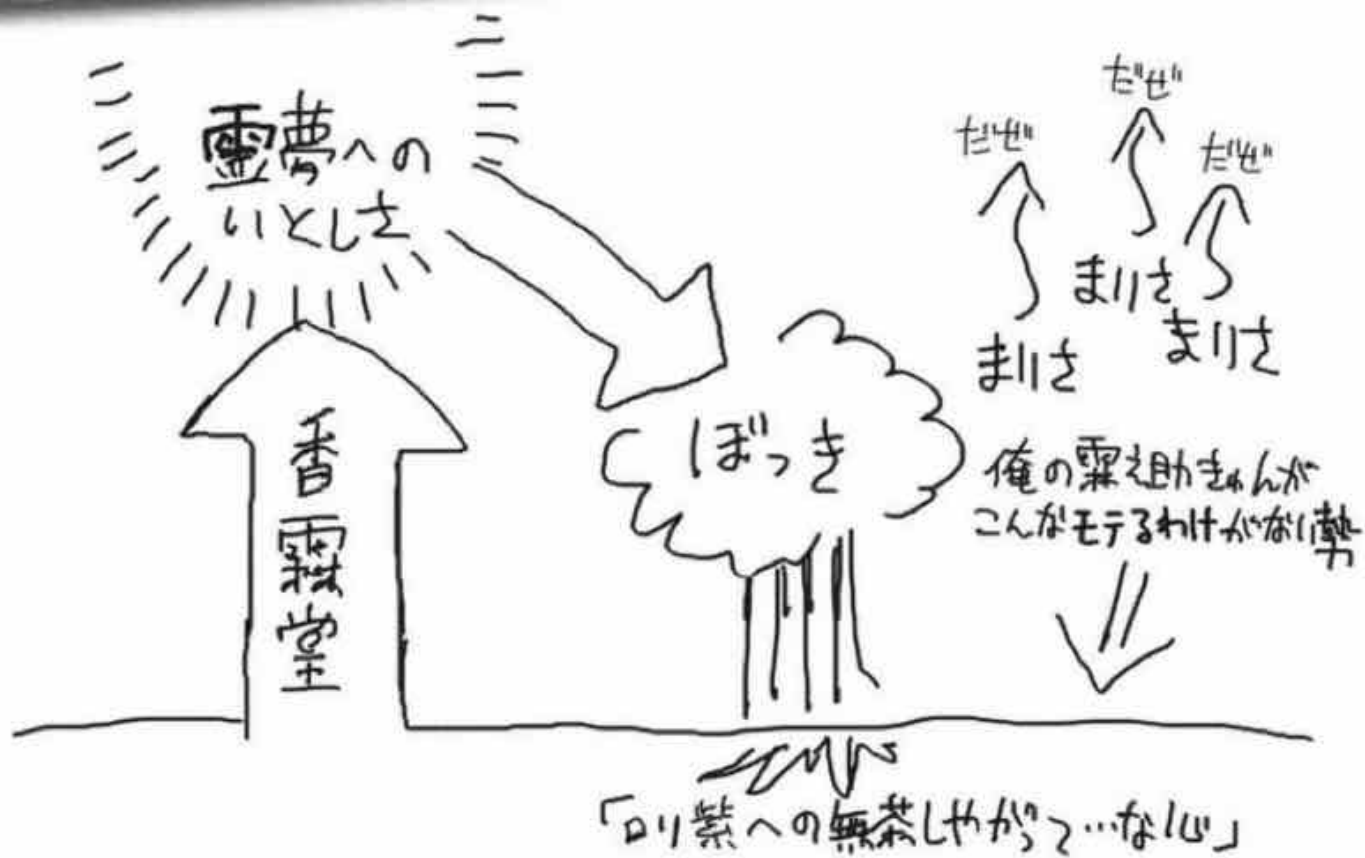 霊夢への
いとしさ
香霖堂
ぼっき
だぜ
だぜ
だぜ
まりさ
まりさ
まりさ
俺の霖之助きゅんが
こんなモテるわけがない勢
「ロリ紫への無茶しやがって…な心」